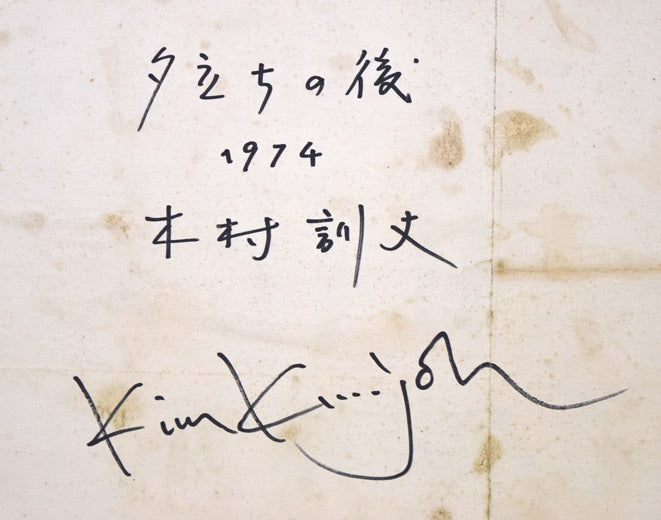 夕立ちの後
1974
木村訓丈
Kim K